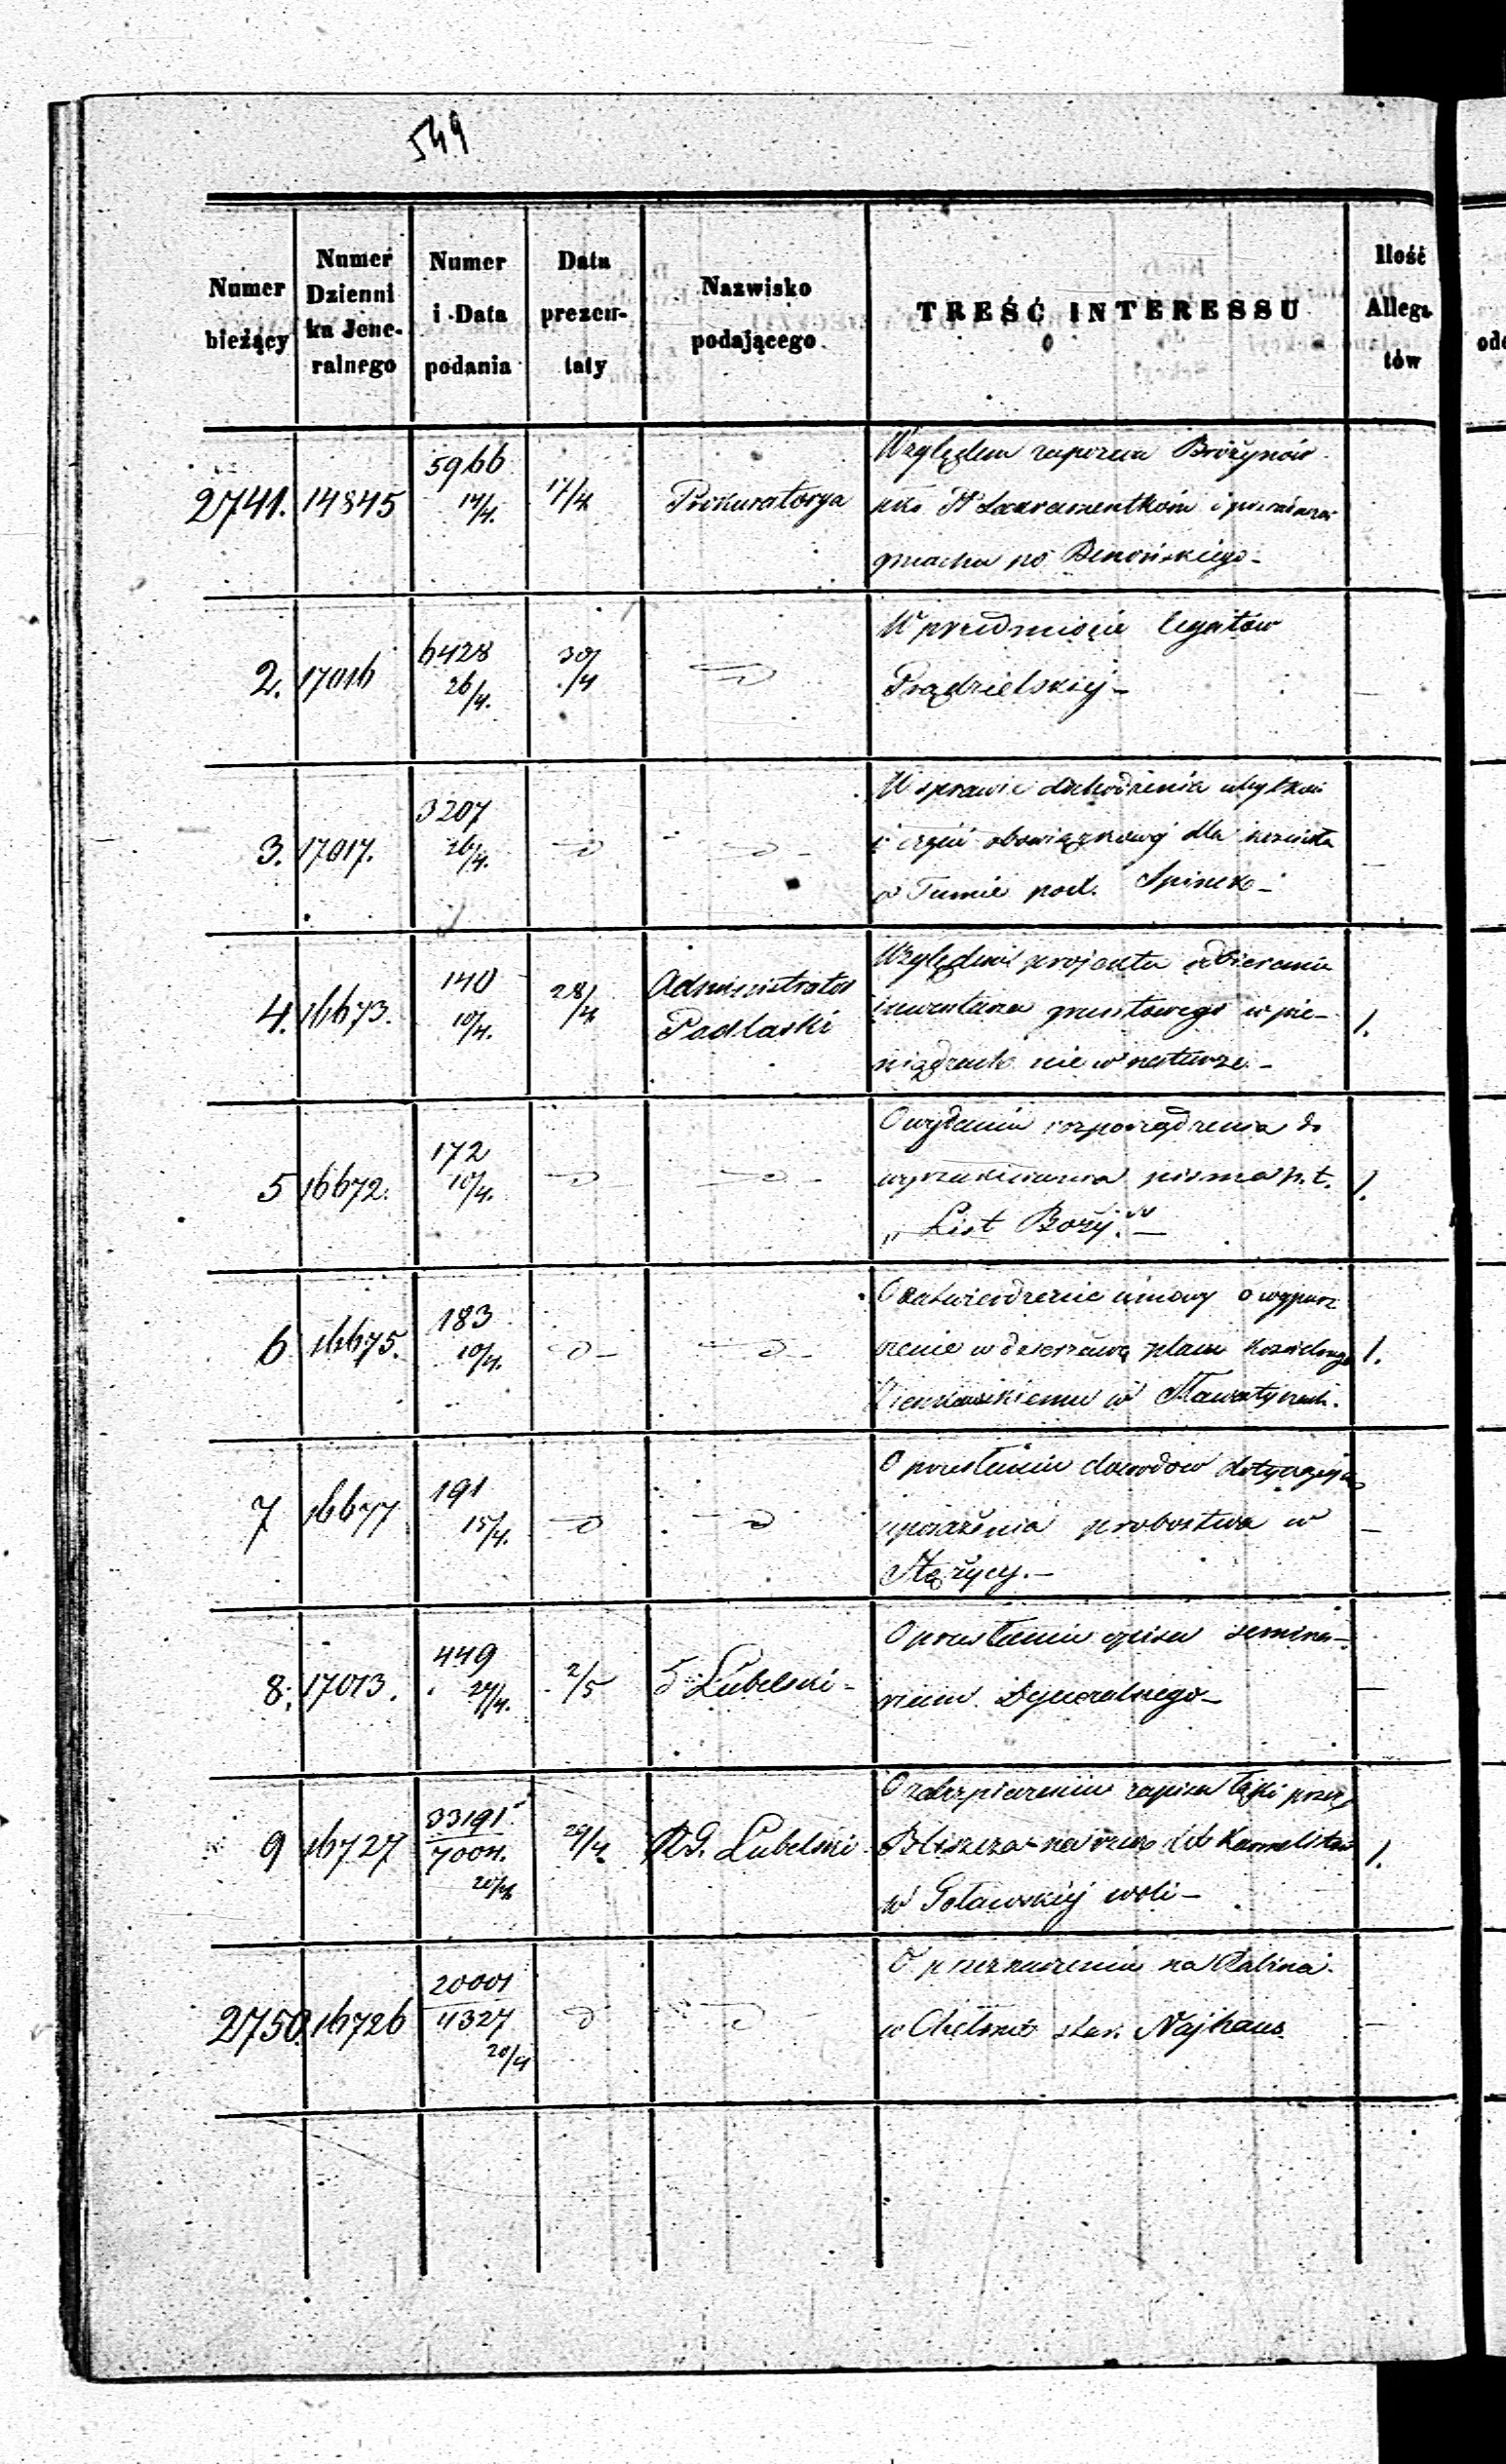 549
Numer bieżący | Numer Dziennika Jeneralnego | Numer i Data podania | Data prezentaty | Nazwisko podającego | TREŚĆ INTERESSU | Ilość Allega tów
2741. 14845 5966 17/4. 17/4 Prokuratorya Względem zapozwu
pko PP Sakramentkom i
gmachu po Benońskiego -
2. 17016 6428 26/4. 30/4 W przedmiocie legatów
Prądzielskiej -
3. 17017. 3207 26/4. W sprawie dochodzenia
i części obowiązkowej dla kościoła
w Tumie pod. -
4. 16673. 140 10/4. 28/4 Administrator Podlaski Względem projektu odbierania
inwentarza gruntowego w pie-
niądzach nie w naturze. - 1.
5 16672. 172 10/4. O wydanie rozporządzenia do
pisma p. t. 1.
„List Boży." -
6 16675. 183 10/4. O zatwierdzenie umowy o wypusz
czenie w dzierżawę placu 1.
w Sławatyczach.
7 16677 191 15/4. O przesłaniu dowodów
uposażenia probostwa w -
Stężycy. -
8. 17013. 449 24/4. 2/5 d Lubelski - O przesłaniu semina-
rium Dyecezalnego - -
9 16727 33191 7004. 20/4 29/4. R. G. Lubelski O zabezpieczeniu zapisu przez
na rzecz Karmelitów 1.
w Woli -
2750. 16726 20001 4327 20/4 O przeznaczeniu na Rabina
w Chełmie star. Najhaus -